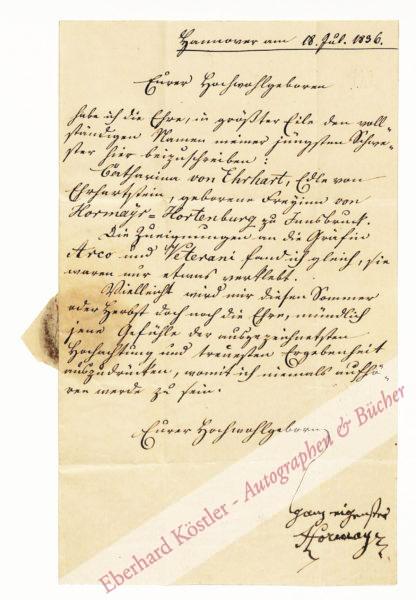 Hannover am 18. Jul. 1836.
Eurer Hochwohlgeboren
habe ich die Ehre, in größter Eile den voll-
ständigen Namen meiner jüngsten Schwe-
ster hier beizuschreiben:
Catharina von Ehrhart, Edle von
Ehrhartstein, geborene Freyinn von
Hormayr-Hortenburg zu Innsbruck.
Die Zueignungen an die Gräfin
Arco und Veterani fand ich gleich, sie
waren nur etwas verklebt.
Vielleicht wird mir diesen Sommer
oder Herbst doch noch die Ehre, mündlich
jene Gefühle der ausgezeichnetsten
Hochachtung und treuesten Ergebenheit
auszudrücken, womit ich niemals aufhö-
ren werde zu sein.
Eurer Hochwohlgeboren
ganz eigenster
Hormayr
Eberhard Köstler - Autographen & Bücher